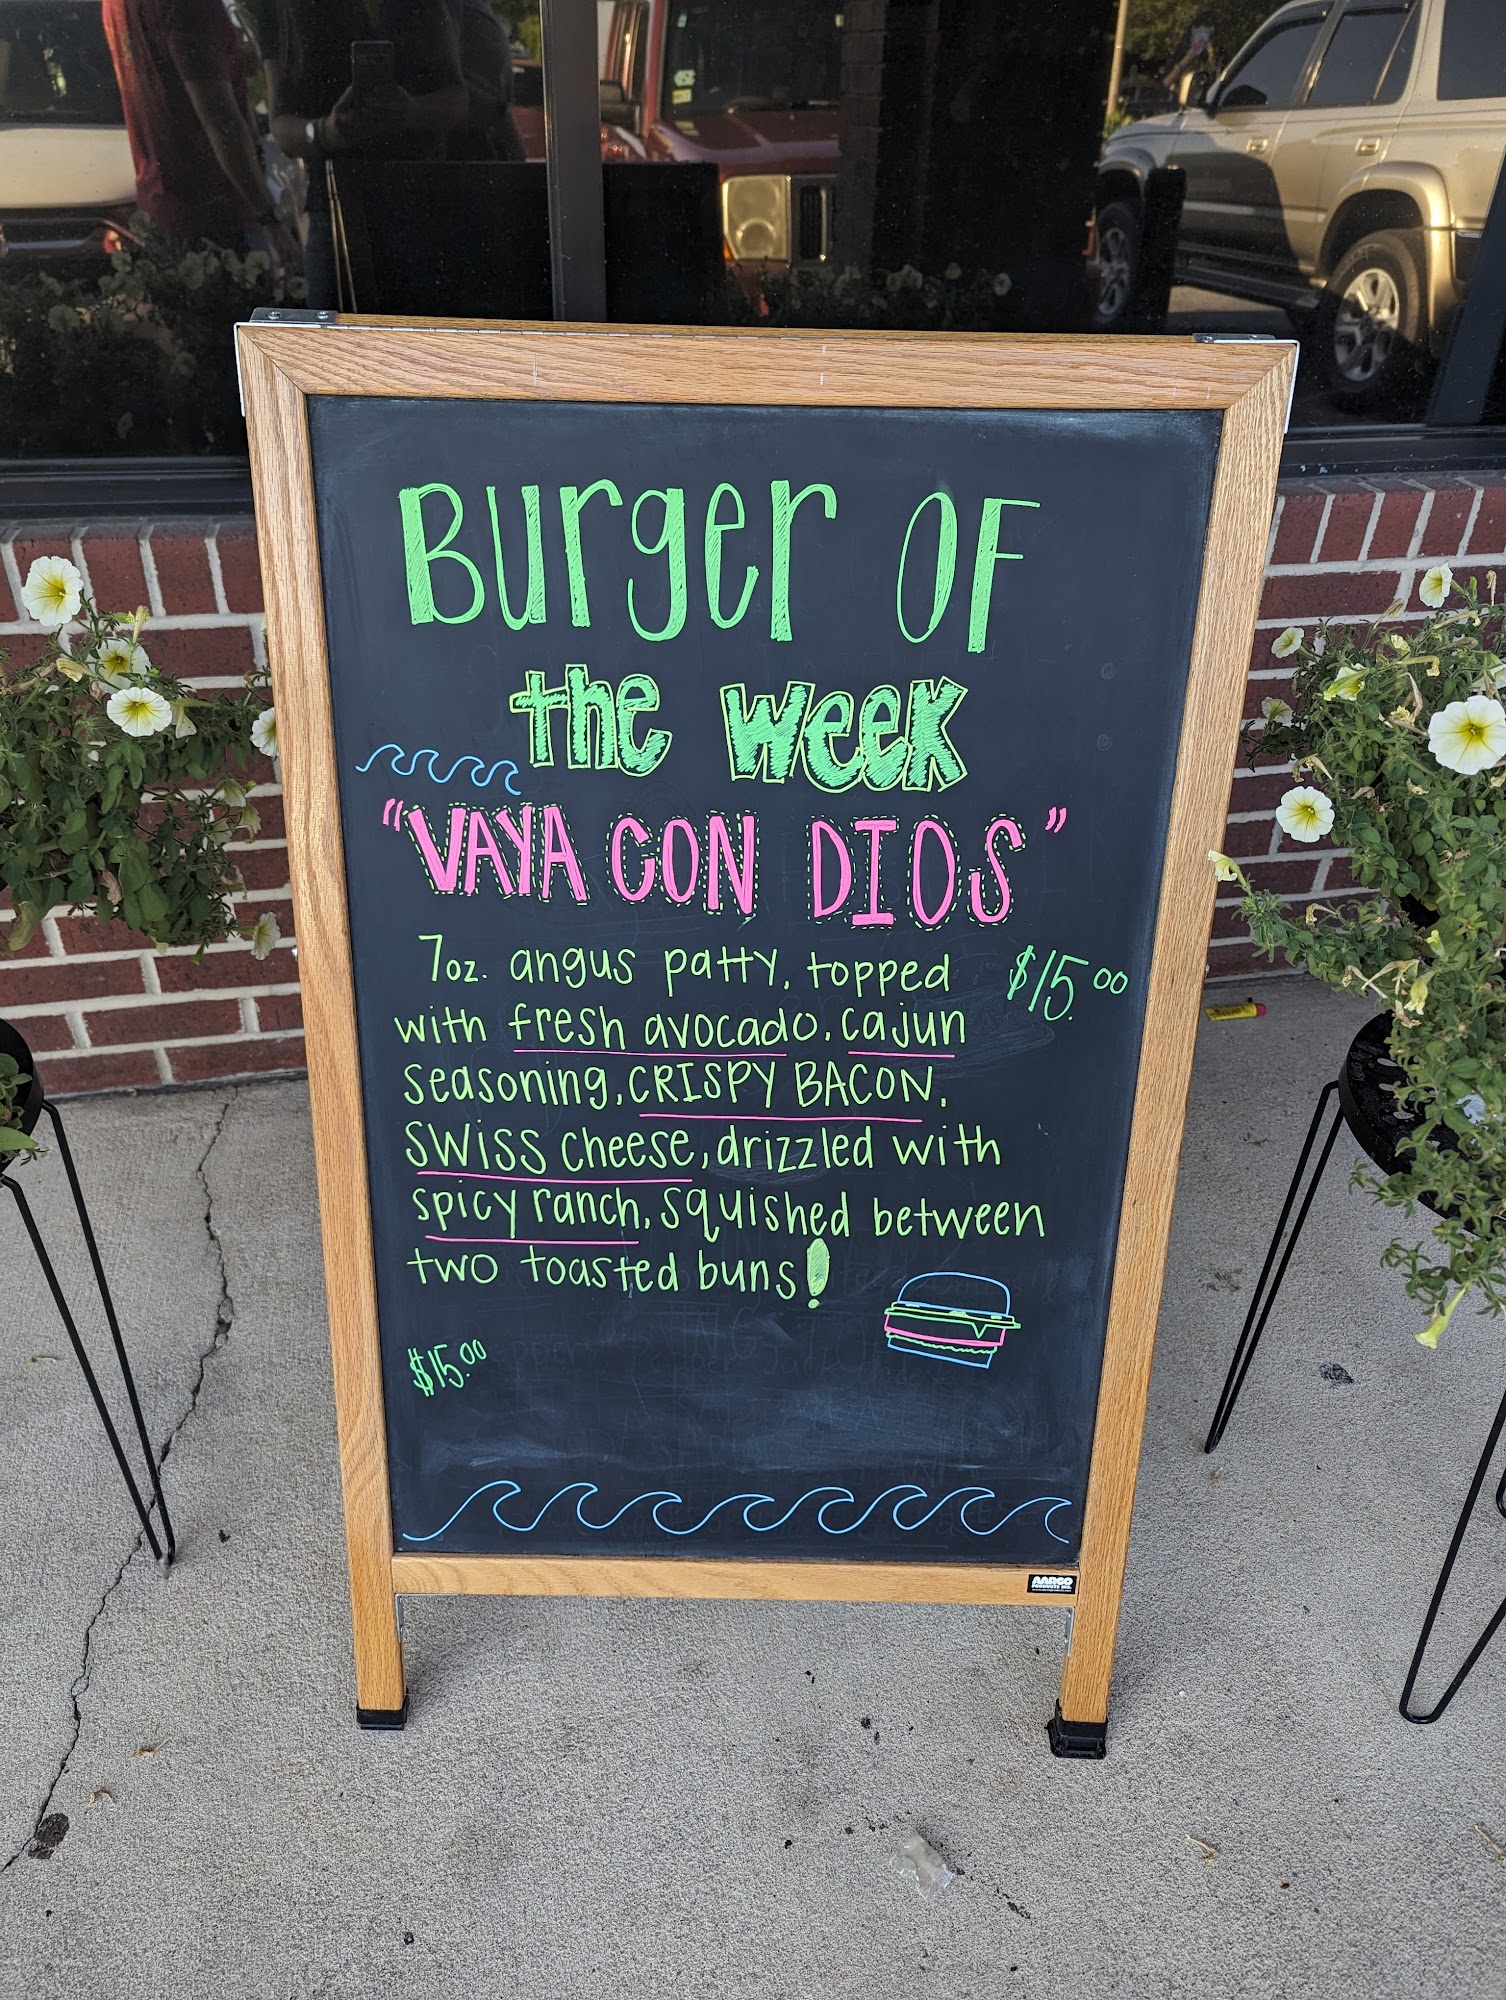 Burger OF
the week
"VAYA CON DIOS"
7oz. angus patty, topped $15.00
with fresh avocado, cajun
seasoning, CRISPY BACON,
SWISS cheese, drizzled with
spicy ranch, squished between
two toasted buns!
$15.00
AARCO
PRODUCTS INC.